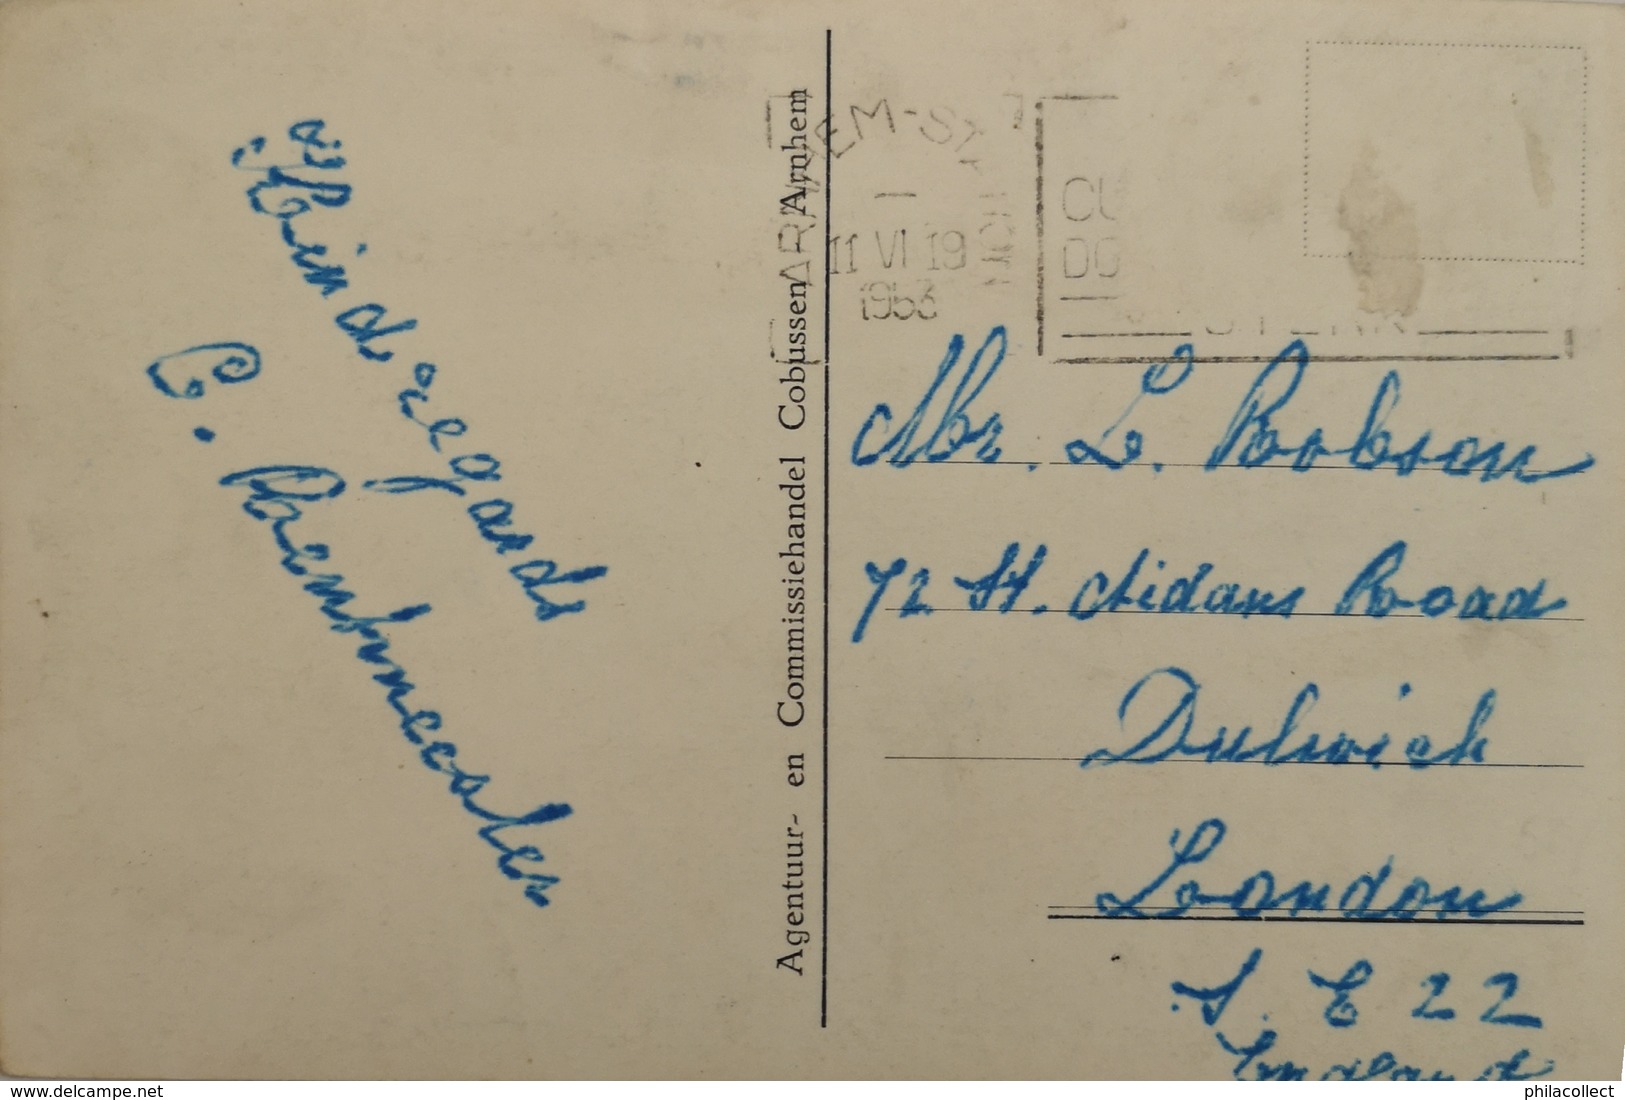 Kind regards
C.
Agentuur- en Commissiehandel Cobussen Arnhem
ARNHEM-STATION
11 VI 19
1953
CU
DO
Mr. L. Robson
72 St. Aidans Road
Dulwich
London
S. E 22
England
www.delcampe.net
philacollect